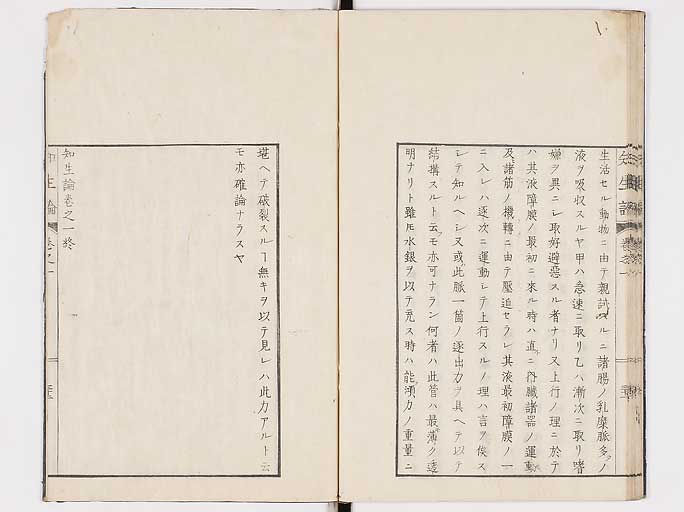 生活セル動物ニ由テ親試スルニ諸腸ノ乳糜脈多クノ
液ヲ吸収スルヤ甲ハ急速ニ取リ乙ハ漸次ニ取リ嗜
嫌ヲ異ニシ取好避悪スル者ナリ又上行ノ理ニ於テ
ハ其液障膜ノ最初ニ来ル時ハ直ニ内臓諸器ノ運動
及諸筋ノ機轉ニ由テ壓迫セラレ其液最初障膜ノ一
ニ入レハ逐次ニ運動シテ上行スルノ理ハ言ヲ俟ス
シテ知ルヘシ又或此脈一箇ノ逐出力ヲ具ヘテ以テ
結構スルト云モ亦可ナラン何者ハ此管ハ最薄ク透
明ナリト雖𪜈水銀ヲ以テ充ス時ハ能ク須力ノ重量ニ
堪ヘテ破裂スルヿ無キヲ以テ見レハ此力アルト云
モ亦確論ナラスヤ
知生論巻之一終